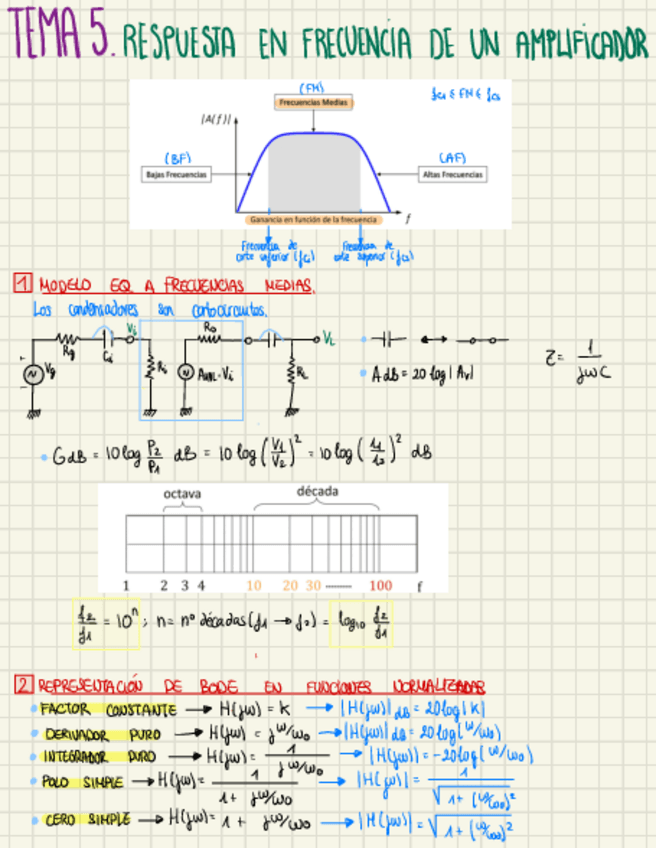 TEMA 5. RESPUESTA EN FRECUENCIA DE UN AMPLIFICADOR
(FM)
Frecuencias Medias
fci ≤ FM ≤ fcs
|A(f)|
(BF)
Bajas Frecuencias
(AF)
Altas Frecuencias
Ganancia en función de la frecuencia
f
Frecuencia de corte inferior (fci)
Frecuencia de corte superior (fcs)
1 MODELO EQ A FRECUENCIAS MEDIAS.
Los condensadores son cortocircuitos.
Rg Ci Vi Ro VL
Vg Ri AVNL·Vi RL
AdB = 20 log |Av|
Z = 1/jωC
GdB = 10 log P2/P1 dB = 10 log (V1/V2)² = 10 log (i1/i2)² dB
octava década
1 2 3 4 10 20 30 100 f
f2/f1 = 10ⁿ ; n = nº décadas (f1 → f2) = log10 f2/f1
2 REPRESENTACIÓN DE BODE EN FUNCIONES NORMALIZADAS
FACTOR CONSTANTE → H(jω) = K → |H(jω)|dB = 20 log |K|
DERIVADOR PURO → H(jω) = jω/ω0 → |H(jω)|dB = 20 log (ω/ω0)
INTEGRADOR PURO → H(jω) = 1/jω/ω0 → |H(jω)| = -20 log (ω/ω0)
POLO SIMPLE → H(jω) = 1/1 + jω/ω0 → |H(jω)| = 1/√1 + (ω/ω0)²
CERO SIMPLE → H(jω) = 1 + jω/ω0 → |H(jω)| = √1 + (ω/ω0)²